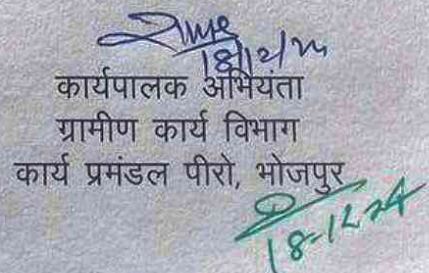 18/12/24
कार्यपालक अभियंता
ग्रामीण कार्य विभाग
कार्य प्रमंडल पीरो, भोजपुर
18-12-24